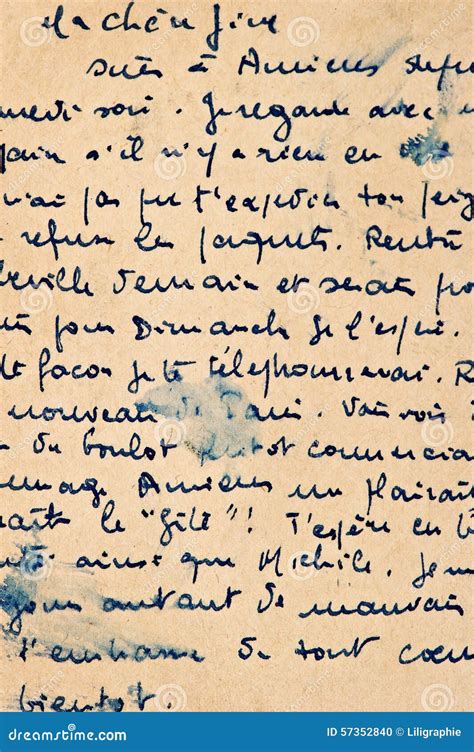 Ma chère
suis à Amiens depu
medi soir. Je regarde avec
pain s'il n'y a rien en
vrai pas pu t'expédier ton
refuse les paquets. Rentre
beville demain et serai
pour Dimanche je l'espère.
te façon je te téléphonerai. R
nouveau de Paris. Vais voir
du boulot plutot commercia
mage Amiens me plairait
rait le "gite"! T'espère en b
ainsi que Michèle. Je
autant de mauvais
t'embrasse de tout coeu
bientot.
dreamstime.com
ID 57352840 © Liligraphie